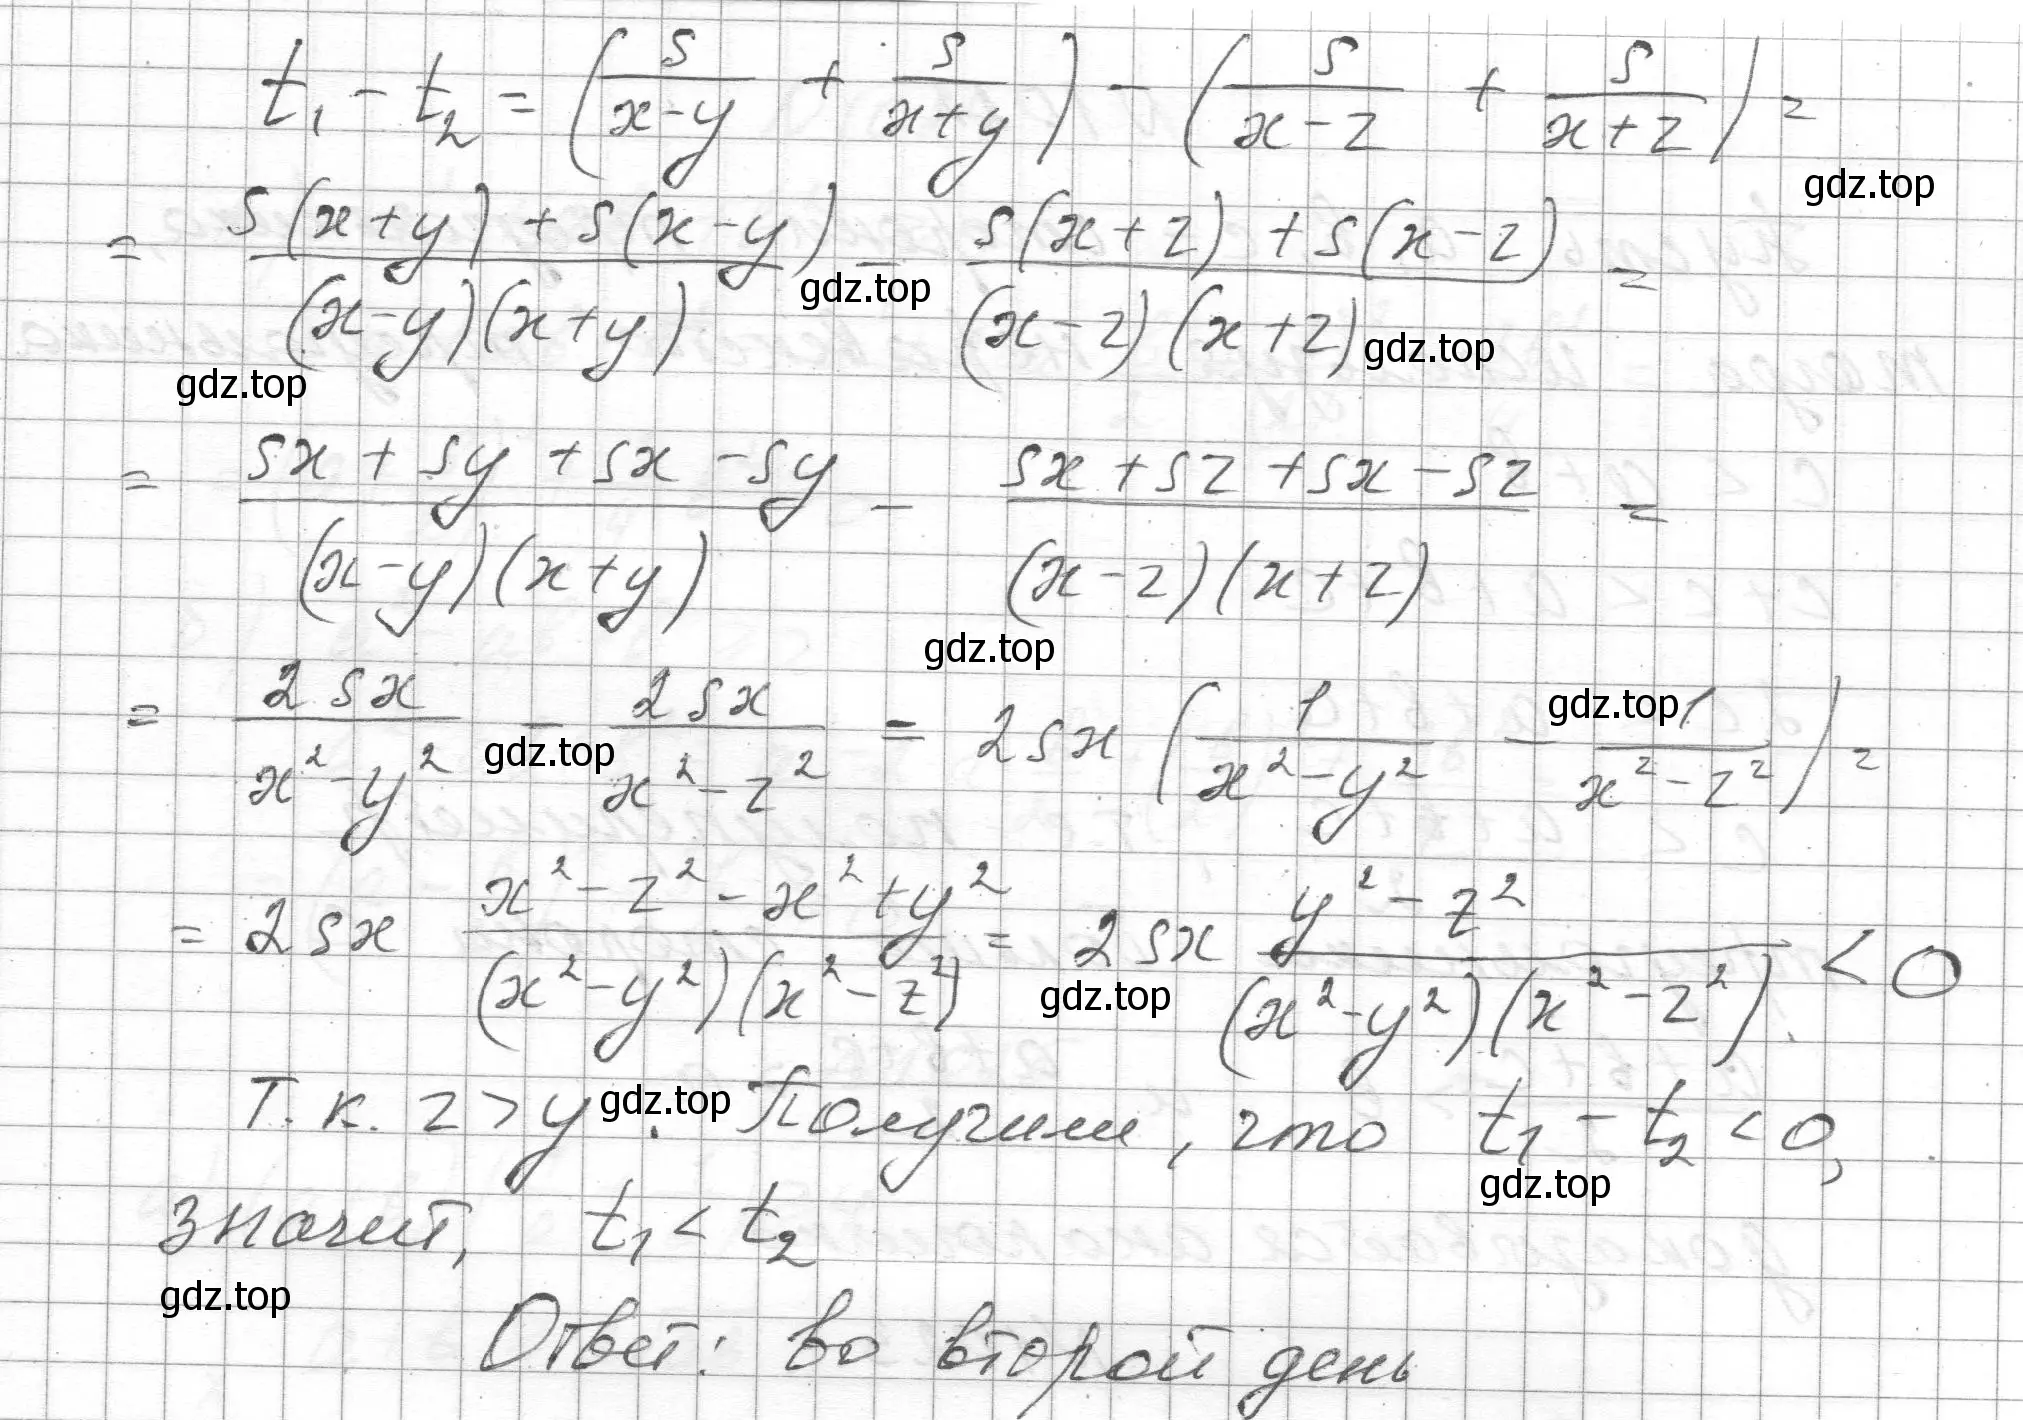 t₁ - t₂ = (s/(x-y) + s/(x+y)) - (s/(x-z) + s/(x+z)) =
gdz.top
= (s(x+y) + s(x-y))/((x-y)(x+y)) - (s(x+z) + s(x-z))/((x-z)(x+z)) =
gdz.top
gdz.top
gdz.top
= (sx + sy + sx - sy)/((x-y)(x+y)) - (sx + sz + sx - sz)/((x-z)(x+z)) =
gdz.top
= 2sx/(x²-y²) - 2sx/(x²-z²) = 2sx(1/(x²-y²) - 1/(x²-z²)) =
gdz.top
gdz.top
= 2sx (x²-z²-x²+y²)/((x²-y²)(x²-z²)) = 2sx (y²-z²)/((x²-y²)(x²-z²)) < 0
gdz.top
Т.к. z > y. Получим, что t₁ - t₂ < 0,
gdz.top
gdz.top
значит, t₁ < t₂
gdz.top
Ответ: во второй день